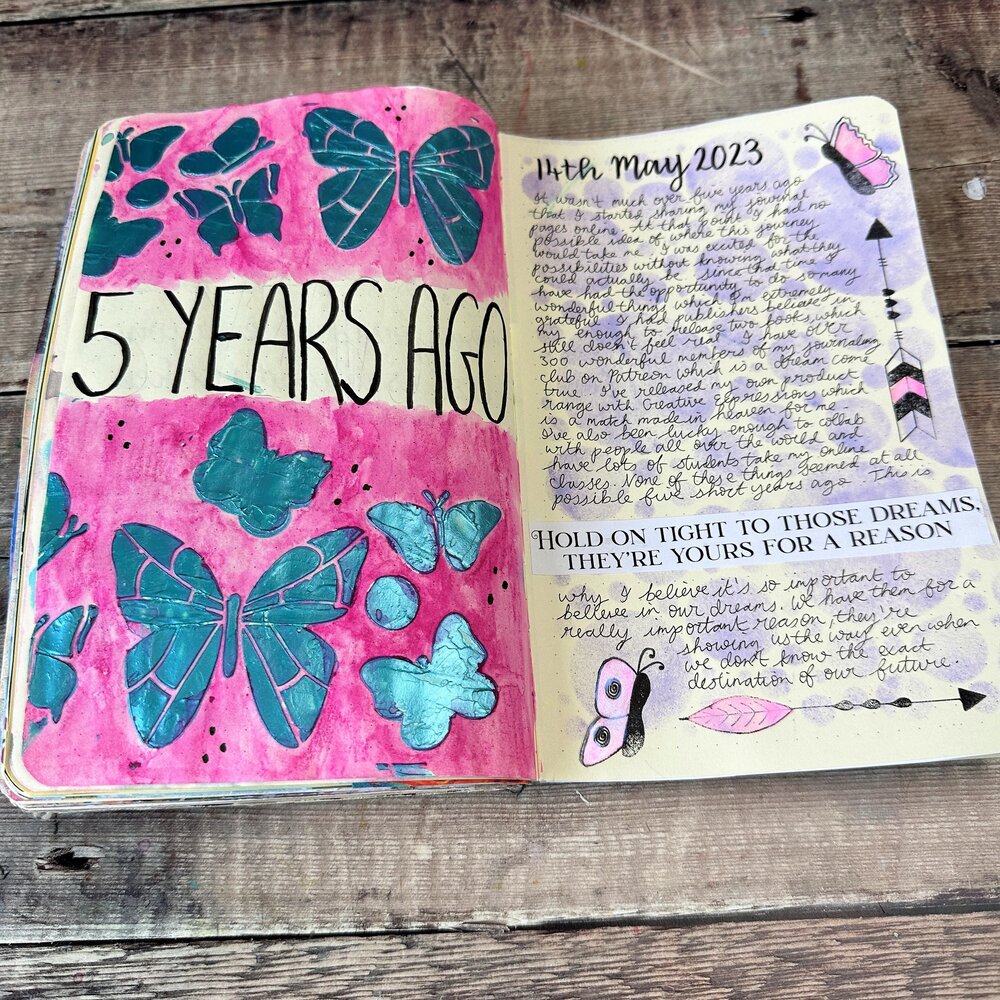 5 YEARS AGO
14th May 2023
It wasn't much over five years ago
that I started sharing my journal
pages online. At that point I had no
possible idea of where this journey
would take me. I was excited for the
possibilities without knowing what they
could actually be. Since that time I
have had the opportunity to do so many
wonderful things which I'm extremely
grateful. I had publishers believe in
my enough to release two books, which
still doesn't feel real. I have over
300 wonderful members of my journaling
club on Patreon which is a dream come
true. I've released my own product
range with Creative Expressions which
is a match made in heaven for me.
I've also been lucky enough to collab
with people all over the world and
have lots of students take my online
classes. None of these things seemed at all
possible five short years ago. This is
HOLD ON TIGHT TO THOSE DREAMS,
THEY'RE YOURS FOR A REASON
why I believe it's so important to
believe in our dreams. We have them for a
really important reason, they're
showing us the way even when
we don't know the exact
destination of our future.